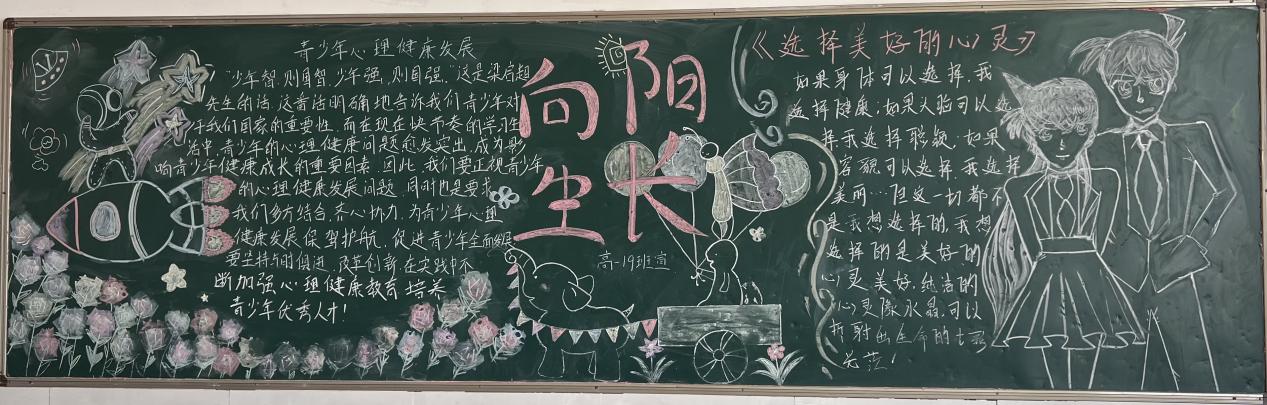 青少年心理健康发展
“少年智,则国智,少年强,则国强,”这是梁启超
先生的话.这昔话明确地告诉我们青少年对
于我们国家的重要性.而在现在快节奏的学习生
活中,青少年的心理健康问题愈发突出,成为影
响青少年健康成长的重要因素.因此,我们要正视青少年
的心理健康发展问题,同时也是要求
我们多方结合,齐心协力,为青少年心理
健康发展保驾护航,促进青少年全面发展
要坚持与时俱进,改革创新,在实践中不
断加强心理健康教育,培养
青少年优秀人才!
向阳
生长
高一19班宣
《选择美好的心灵》
如果身体可以选择,我
选择健康;如果人脸可以选
择我选择聪颖,如果
容貌可以选择,我选择
美丽…但这一切都不
是我想选择的,我想
选择的是美好的
心灵,美好,纯洁的
心灵像水晶,可以
折射出生命的七彩
光茫!